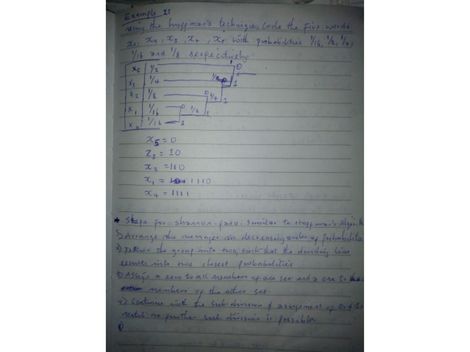 Example 2:
Using the Huffman's technique, Code the five words
x₁, x₂, x₃, x₄, x₅ with probabilities 1/16, 1/4, 1/8,
1/16 and 1/2 respectively
x₅ 1/2 0
x₂ 1/4 1/2 0 1
x₃ 1/8 0 1/4 1
x₁ 1/16 0 1/8 1
x₄ 1/16 1
x₅ = 0
x₂ = 10
x₃ = 110
x₁ = 1110
x₄ = 1111
* Steps for Shannon-Fano similar to Huffman's
1) Arrange the messages in decreasing order of probabilities
2) the group into two, such that the dividing line
results into two closest probabilities
3) Assign a zero to all members of one set and a one to
members of the other set
4) Continue with the sub-division & assignment of 0's & 1s
until no further sub division is possible